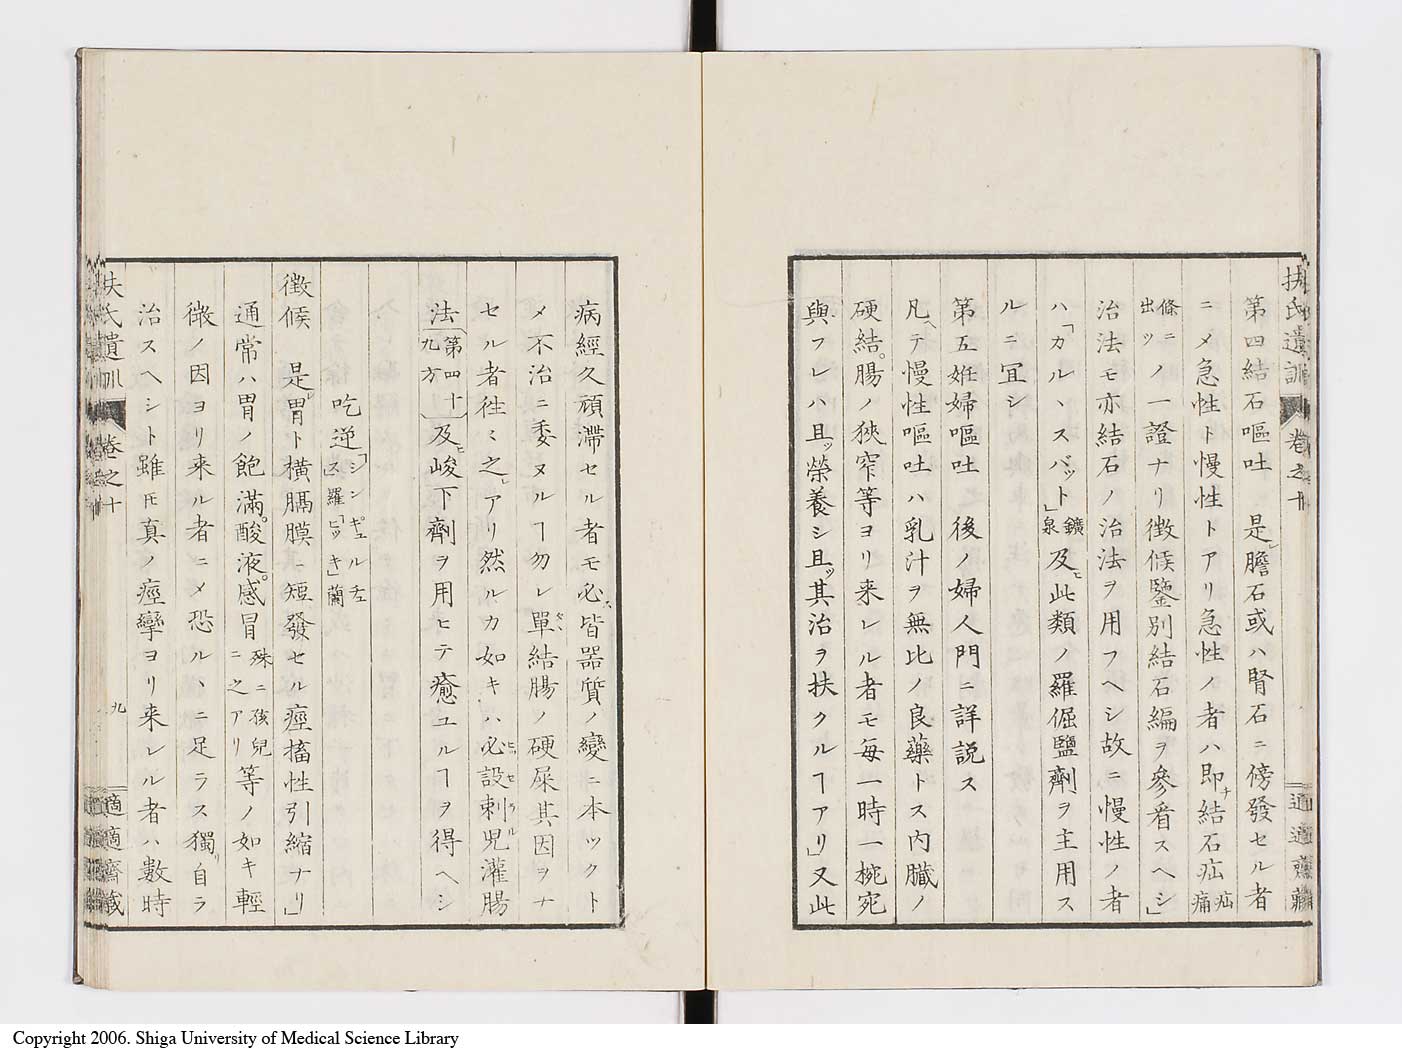 扶氏遺訓 巻之十 適適齋藏
第四結石嘔吐 是レ膽石或ハ腎石ニ傍發セル者
ニメ急性ト慢性トアリ急性ノ者ハ即チ結石疝疝痛
條ニ出ツノ一證ナリ徴候鑒別結石編ヲ參看スヘシ」
治法モ亦結石ノ治法ヲ用フヘシ故ニ慢性ノ者
ハ「カルヽスバット」鑛泉及ヒ此類ノ羅倔鹽劑ヲ主用ス
ルニ宜シ
第五姙婦嘔吐 後ノ婦人門ニ詳説ス
凡ヘテ慢性嘔吐ハ乳汁ヲ無比ノ良藥トス内臓ノ
硬結。腸ノ狹窄等ヨリ来レル者モ毎一時一椀宛
與フレハ且ツ榮養シ且ツ其治ヲ扶クルヿアリ」又此
病經久頑滯セル者モ必ス皆器質ノ變ニ本ツクト
メ不治ニ委ヌルヿ勿レ單結腸ノ硬屎其因ヲナ
セル者徃ミ之レアリ然ルカ如キハ必設剌児灌腸
法〔第四十九方〕及ヒ峻下劑ヲ用ヒテ癒ユルヿヲ得ヘシ
吃逆「シンギュルチュス」羅「ヒッキ」蘭
徴候 是レ胃ト横膈膜ニ短發セル痙搐性引縮ナリ」
通常ハ胃ノ飽滿。酸液。感冒殊ニ孩兒ニ之アリ等ノ如キ輕
微ノ因ヨリ来ル者ニメ恐ルヽニ足ラス獨リ自ラ
治スヘシト雖𪜈真ノ痙攣ヨリ来レル者ハ數時
扶氏遺訓 巻之十 九 適適齋藏
Copyright 2006. Shiga University of Medical Science Library